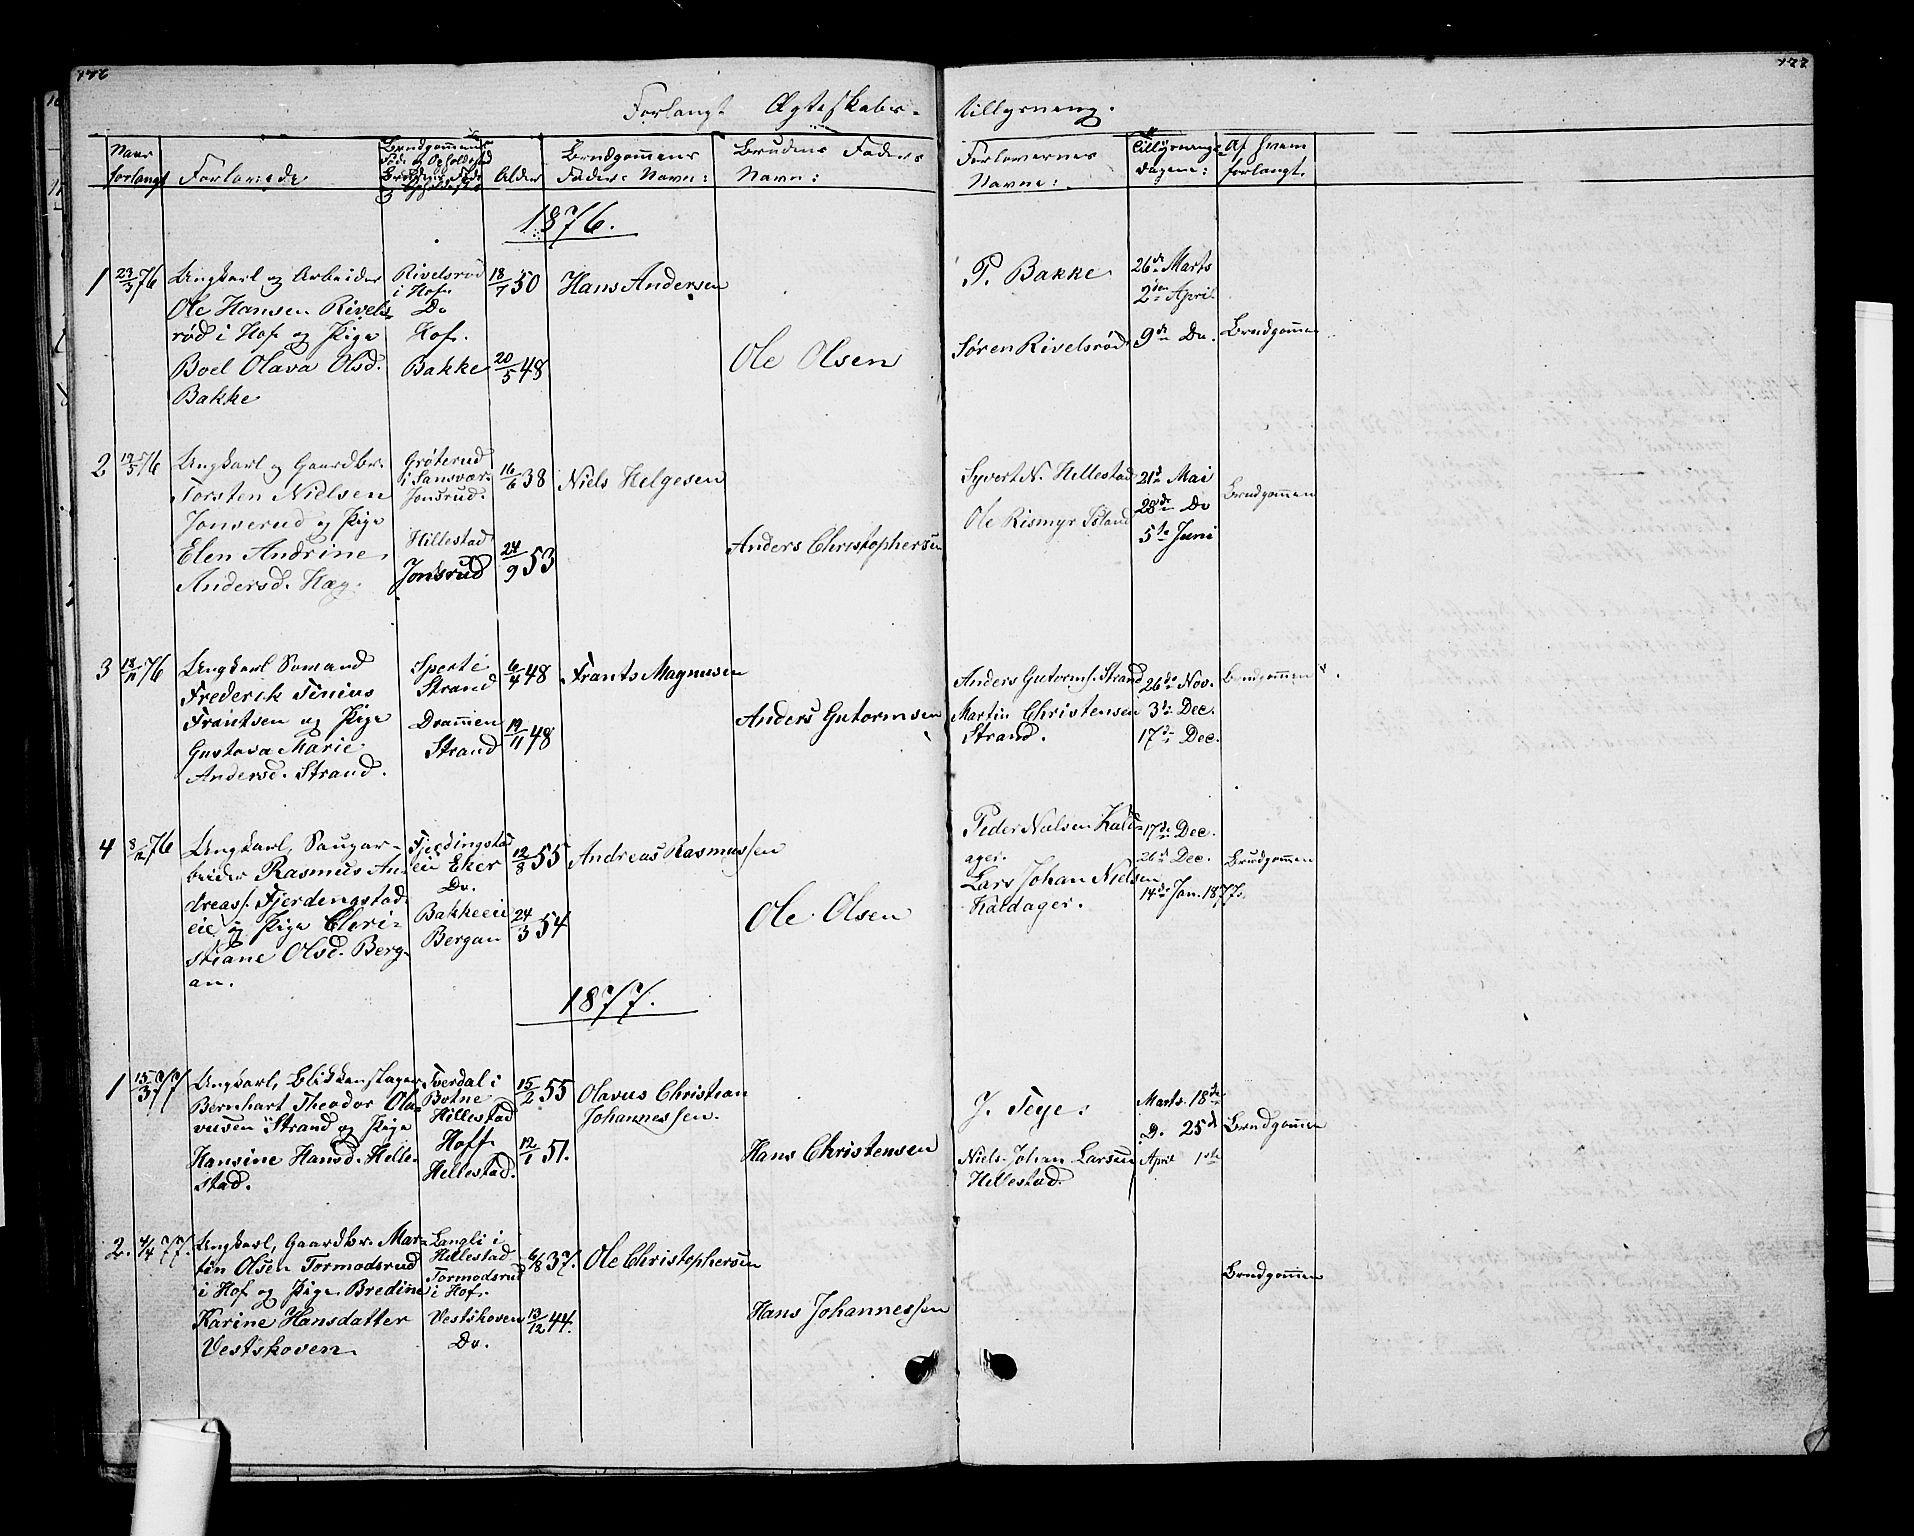 176
177
Forlangt Ægteskabs-
tillysning.
Naar forlangt
Forlovede
Brudgommens Føde og Opholdssted
Brudens Føde og Opholdssted
Alder
Brudgommens Fader Navn:
Brudens Faders Navn:
Forlovernes Navne:
Tillysnings Dagene:
Af hvem forlangt.
1876.
1 23/3 76
Ungkarl og Arbeider
Ole Hansen Rivels-
rød i Hof og Pige
Boel Olava Olsd.
Bakke
Rivelsrød
i Hof.
Do
Hof.
Bakke
18/7 50
20/5 48
Hans Andersen
Ole Olsen
P. Bakke
Søren Rivelsrød
26de Marts
2den April.
9de Do.
Brudgommen
2 19/5 76
Ungkarl og Gaardbr.
Torsten Nielsen
Jonserud og Pige
Elen Andrine
Andersd. Hæg.
Grøterud
i Sansvær
Jonsrud.
Hillestad
Jonsrud
16/6 38
24/9 53
Niels Helgesen
Anders Christophersen
Syvert N. Hillestad
Ole Rismyr
21de Mai
28de Do
5te Juni
Brudgommen
3 18/11 76
Ungkarl Sømand
Frederik Tinius
Frantsen og Pige
Gustava Marie
Andersd. Strand.
Strand
Drammen
Strand
6/4 48
19/11 48
Frants Magnusen
Anders Gutormsen
Anders Gutorms. Strand
Martin Christensen
Strand.
26de Nov.
3de Dec.
17de Dec.
Brudgommen
4 8/12 76
Ungkarl, Saugar-
beider Rasmus An-
dreass. Fjerdingstad-
eie og Pige Chri-
stiane Olsd. Berg-
an.
Fjerdingsta
eie Eker
Do.
Bakkeeie
Bergan
12/8 55
24/3 54
Andreas Rasmussen
Ole Olsen
Peder Nielsen Kald-
ager.
Lars Johan Nielsen
Kaldager.
17de Dec.
26de Dec.
14de Jan. 1877.
Brudgommen
1877.
1 15/3 77
Ungkarl, Blikkenslager
Bernhart Theodor Ola-
vusen Strand og Pige
Hansine Hansd. Helle-
stad.
Tverdal i
Botne
Hillestad
Hoff
Hellestad.
15/2 55
12/1 51.
Olavus Christian
Johannessen.
Hans Christensen
J. Teje:
Niels Johan Larsen
Hellestad.
Marts 18de
D. 25de
April 1ste
Brudgommen
2. 4/4 77.
Ungkarl, Gaardbr. Mar-
tin Olsen Tormodsrud
i Hof og Pige Bredine
Karine Hansdatter
Vestskoven
Langli i
Hillestad
Tormodsrud
i Hof.
Vestskoven
Do.
6/8 37.
13/12 44.
Ole Christophersen
Hans Johannessen
Brudgommen